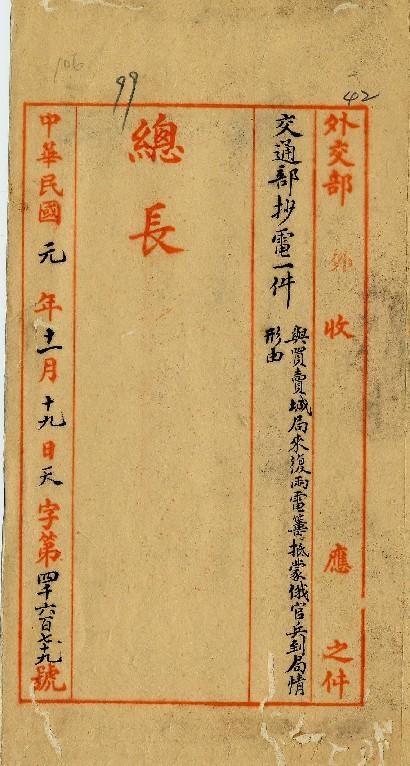 42
外交部收應之件
交通部抄電一件
與買賣城局來復兩電籌抵蒙俄官兵到局情
形由
總長
99
106
中華民國元年十一月十九日天字第四千六百七十九號